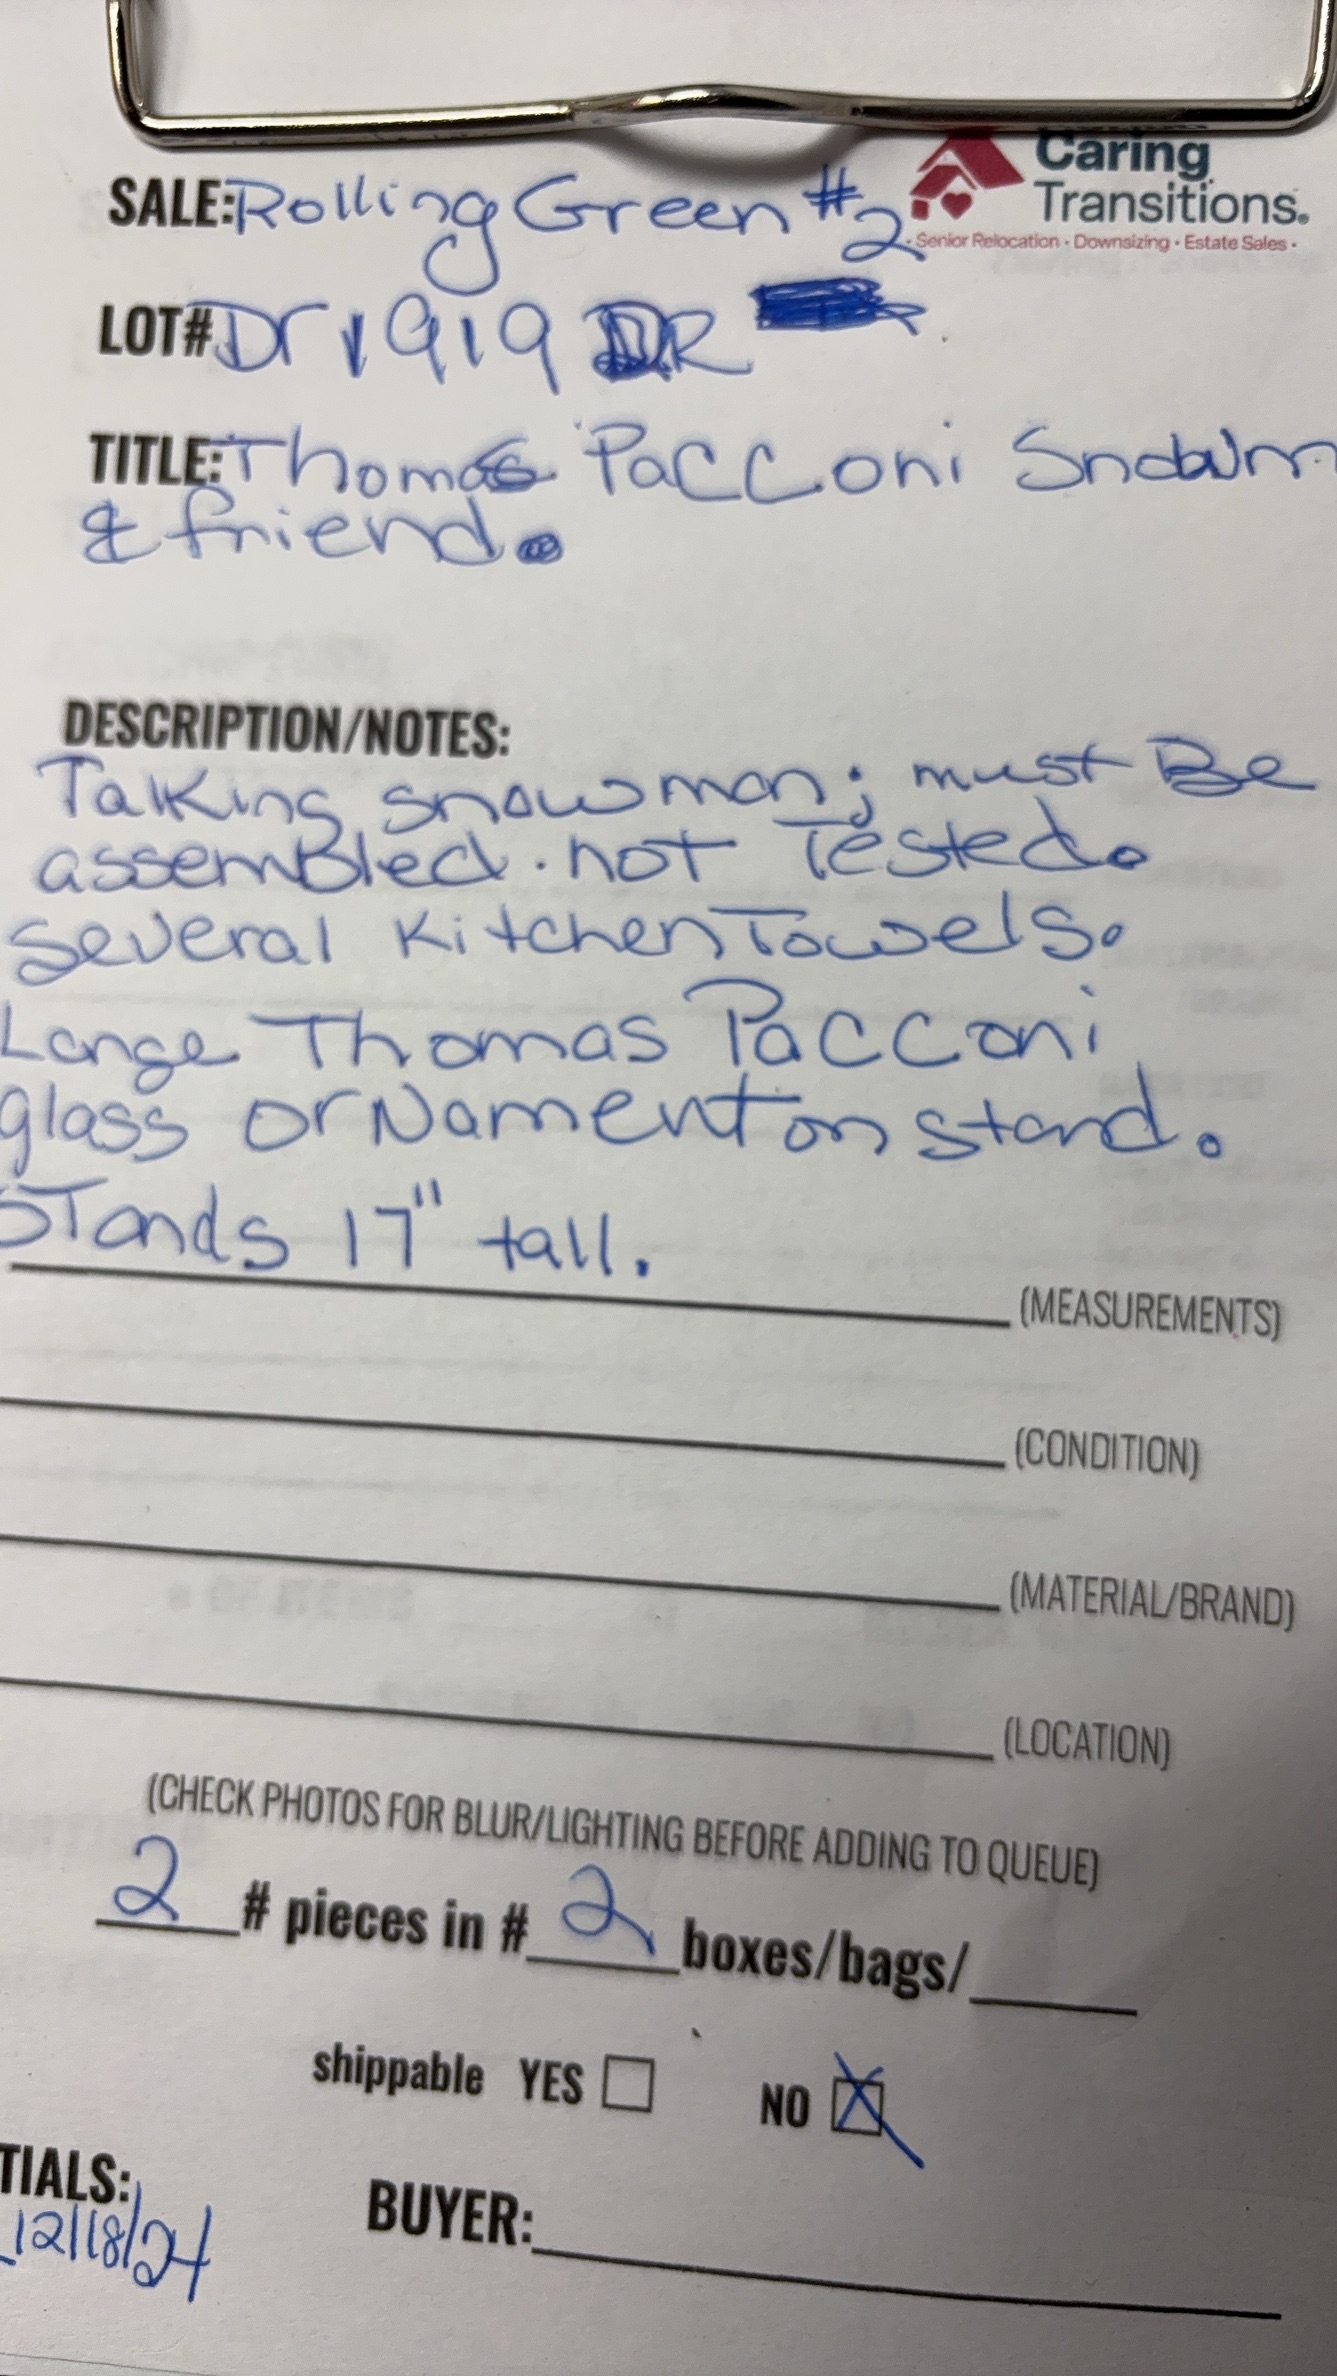 Caring
Transitions®
Senior Relocation · Downsizing · Estate Sales
SALE: Rolling Green #2
LOT# Dr 1919 DR
TITLE: Thomas Pacconi Snowm
& friend.
DESCRIPTION/NOTES:
Talking snowman; must Be
assembled. not Tested.
several Kitchen Towels.
Large Thomas Pacconi
glass orNament on stand.
STands 17" tall.
(MEASUREMENTS)
(CONDITION)
(MATERIAL/BRAND)
(LOCATION)
(CHECK PHOTOS FOR BLUR/LIGHTING BEFORE ADDING TO QUEUE)
2 # pieces in # 2 boxes/bags/
shippable YES NO X
TIALS:
12/18/24
BUYER: